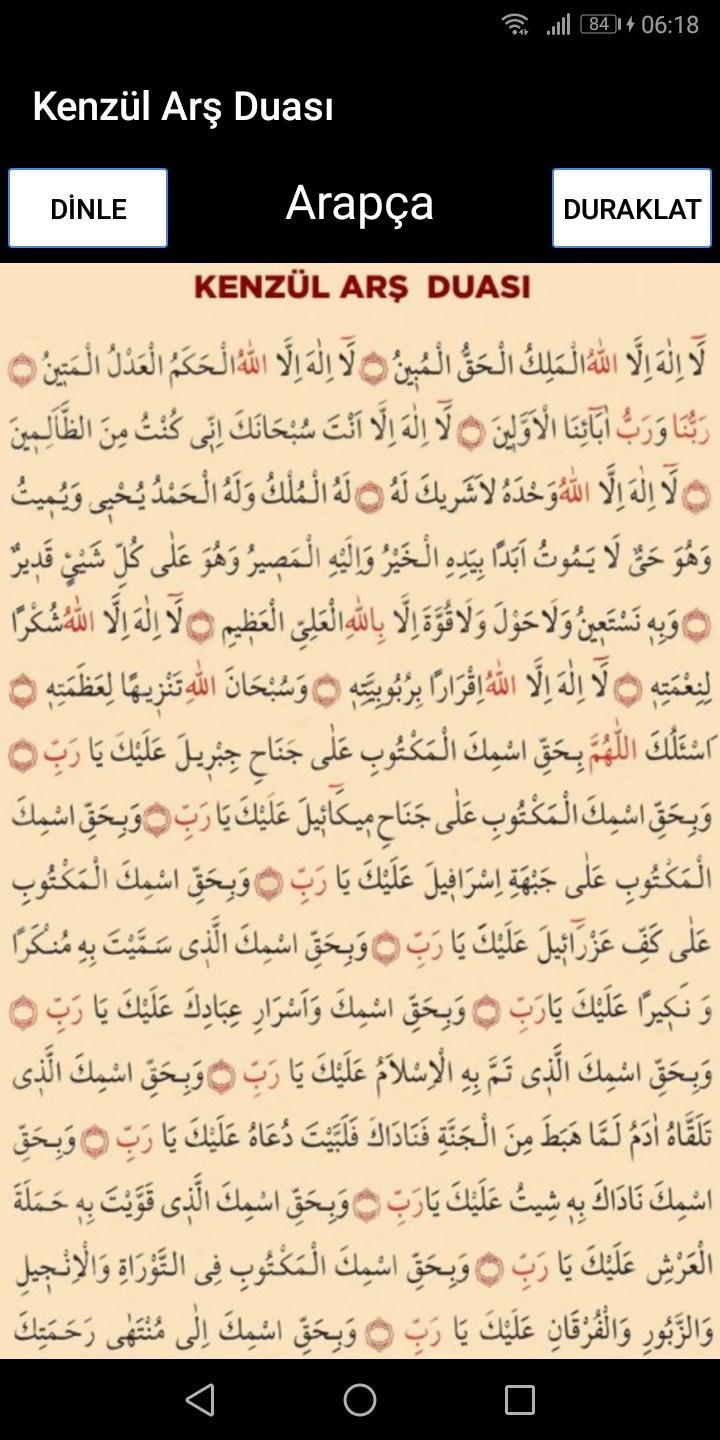 84 06:18
Kenzül Arş Duası
DİNLE
Arapça
DURAKLAT
KENZÜL ARŞ DUASI
لَٓا اِلٰهَ اِلَّا اللّٰهُ الْمَلِكُ الْحَقُّ الْمُبٖينُ ۝ لَٓا اِلٰهَ اِلَّا اللّٰهُ الْحَكَمُ الْعَدْلُ الْمَتٖينُ ۝
رَبُّنَا وَرَبُّ اٰبَٓائِنَا الْاَوَّلٖينَ ۝ لَٓا اِلٰهَ اِلَّا اَنْتَ سُبْحَانَكَ اِنّٖى كُنْتُ مِنَ الظَّالِمٖينَ
۝ لَٓا اِلٰهَ اِلَّا اللّٰهُ وَحْدَهُ لَاشَرٖيكَ لَهُ ۝ لَهُ الْمُلْكُ وَلَهُ الْحَمْدُ يُحْيٖى وَيُمٖيتُ
وَهُوَ حَىٌّ لَا يَمُوتُ اَبَدًا بِيَدِهِ الْخَيْرُ وَاِلَيْهِ الْمَصٖيرُ وَهُوَ عَلٰى كُلِّ شَيْئٍ قَدٖيرٌ
۝ وَبِهٖ نَسْتَعٖينُ وَلَاحَوْلَ وَلَاقُوَّةَ اِلَّا بِاللّٰهِ الْعَلِىِّ الْعَظٖيمِ ۝ لَٓا اِلٰهَ اِلَّا اللّٰهُ شُكْرًا
لِنِعْمَتِهٖ ۝ لَٓا اِلٰهَ اِلَّا اللّٰهُ اِقْرَارًا بِرُبُوبِيَّتِهٖ ۝ وَسُبْحَانَ اللّٰهِ تَنْزٖيهًا لِعَظَمَتِهٖ ۝
اَسْئَلُكَ اللّٰهُمَّ بِحَقِّ اسْمِكَ الْمَكْتُوبِ عَلٰى جَنَاحِ جِبْرٖيلَ عَلَيْكَ يَا رَبِّ ۝
وَبِحَقِّ اسْمِكَ الْمَكْتُوبِ عَلٰى جَنَاحِ مٖيكَٓائٖيلَ عَلَيْكَ يَا رَبِّ ۝ وَبِحَقِّ اسْمِكَ
الْمَكْتُوبِ عَلٰى جَبْهَةِ اِسْرَافٖيلَ عَلَيْكَ يَا رَبِّ ۝ وَبِحَقِّ اسْمِكَ الْمَكْتُوبِ
عَلٰى كَفِّ عَزْرَٓائٖيلَ عَلَيْكَ يَا رَبِّ ۝ وَبِحَقِّ اسْمِكَ الَّذٖى سَمَّيْتَ بِهٖ مُنْكَرًا
وَ نَكٖيرًا عَلَيْكَ يَارَبِّ ۝ وَبِحَقِّ اسْمِكَ وَاَسْرَارِ عِبَادِكَ عَلَيْكَ يَا رَبِّ ۝
وَبِحَقِّ اسْمِكَ الَّذٖى تَمَّ بِهِ الْاِسْلَامُ عَلَيْكَ يَا رَبِّ ۝ وَبِحَقِّ اسْمِكَ الَّذٖى
تَلَقَّاهُ اٰدَمُ لَمَّا هَبَطَ مِنَ الْجَنَّةِ فَنَادَاكَ فَلَبَّيْتَ دُعَاهُ عَلَيْكَ يَا رَبِّ ۝ وَبِحَقِّ
اسْمِكَ نَادَاكَ بِهٖ شٖيثُ عَلَيْكَ يَارَبِّ ۝ وَبِحَقِّ اسْمِكَ الَّذٖى قَوَّيْتَ بِهٖ حَمَلَةَ
الْعَرْشِ عَلَيْكَ يَا رَبِّ ۝ وَبِحَقِّ اسْمِكَ الْمَكْتُوبِ فِى التَّوْرَاةِ وَالْاِنْجٖيلِ
وَالزَّبُورِ وَالْفُرْقَانِ عَلَيْكَ يَا رَبِّ ۝ وَبِحَقِّ اسْمِكَ اِلٰى مُنْتَهٰى رَحَمَتِكَ